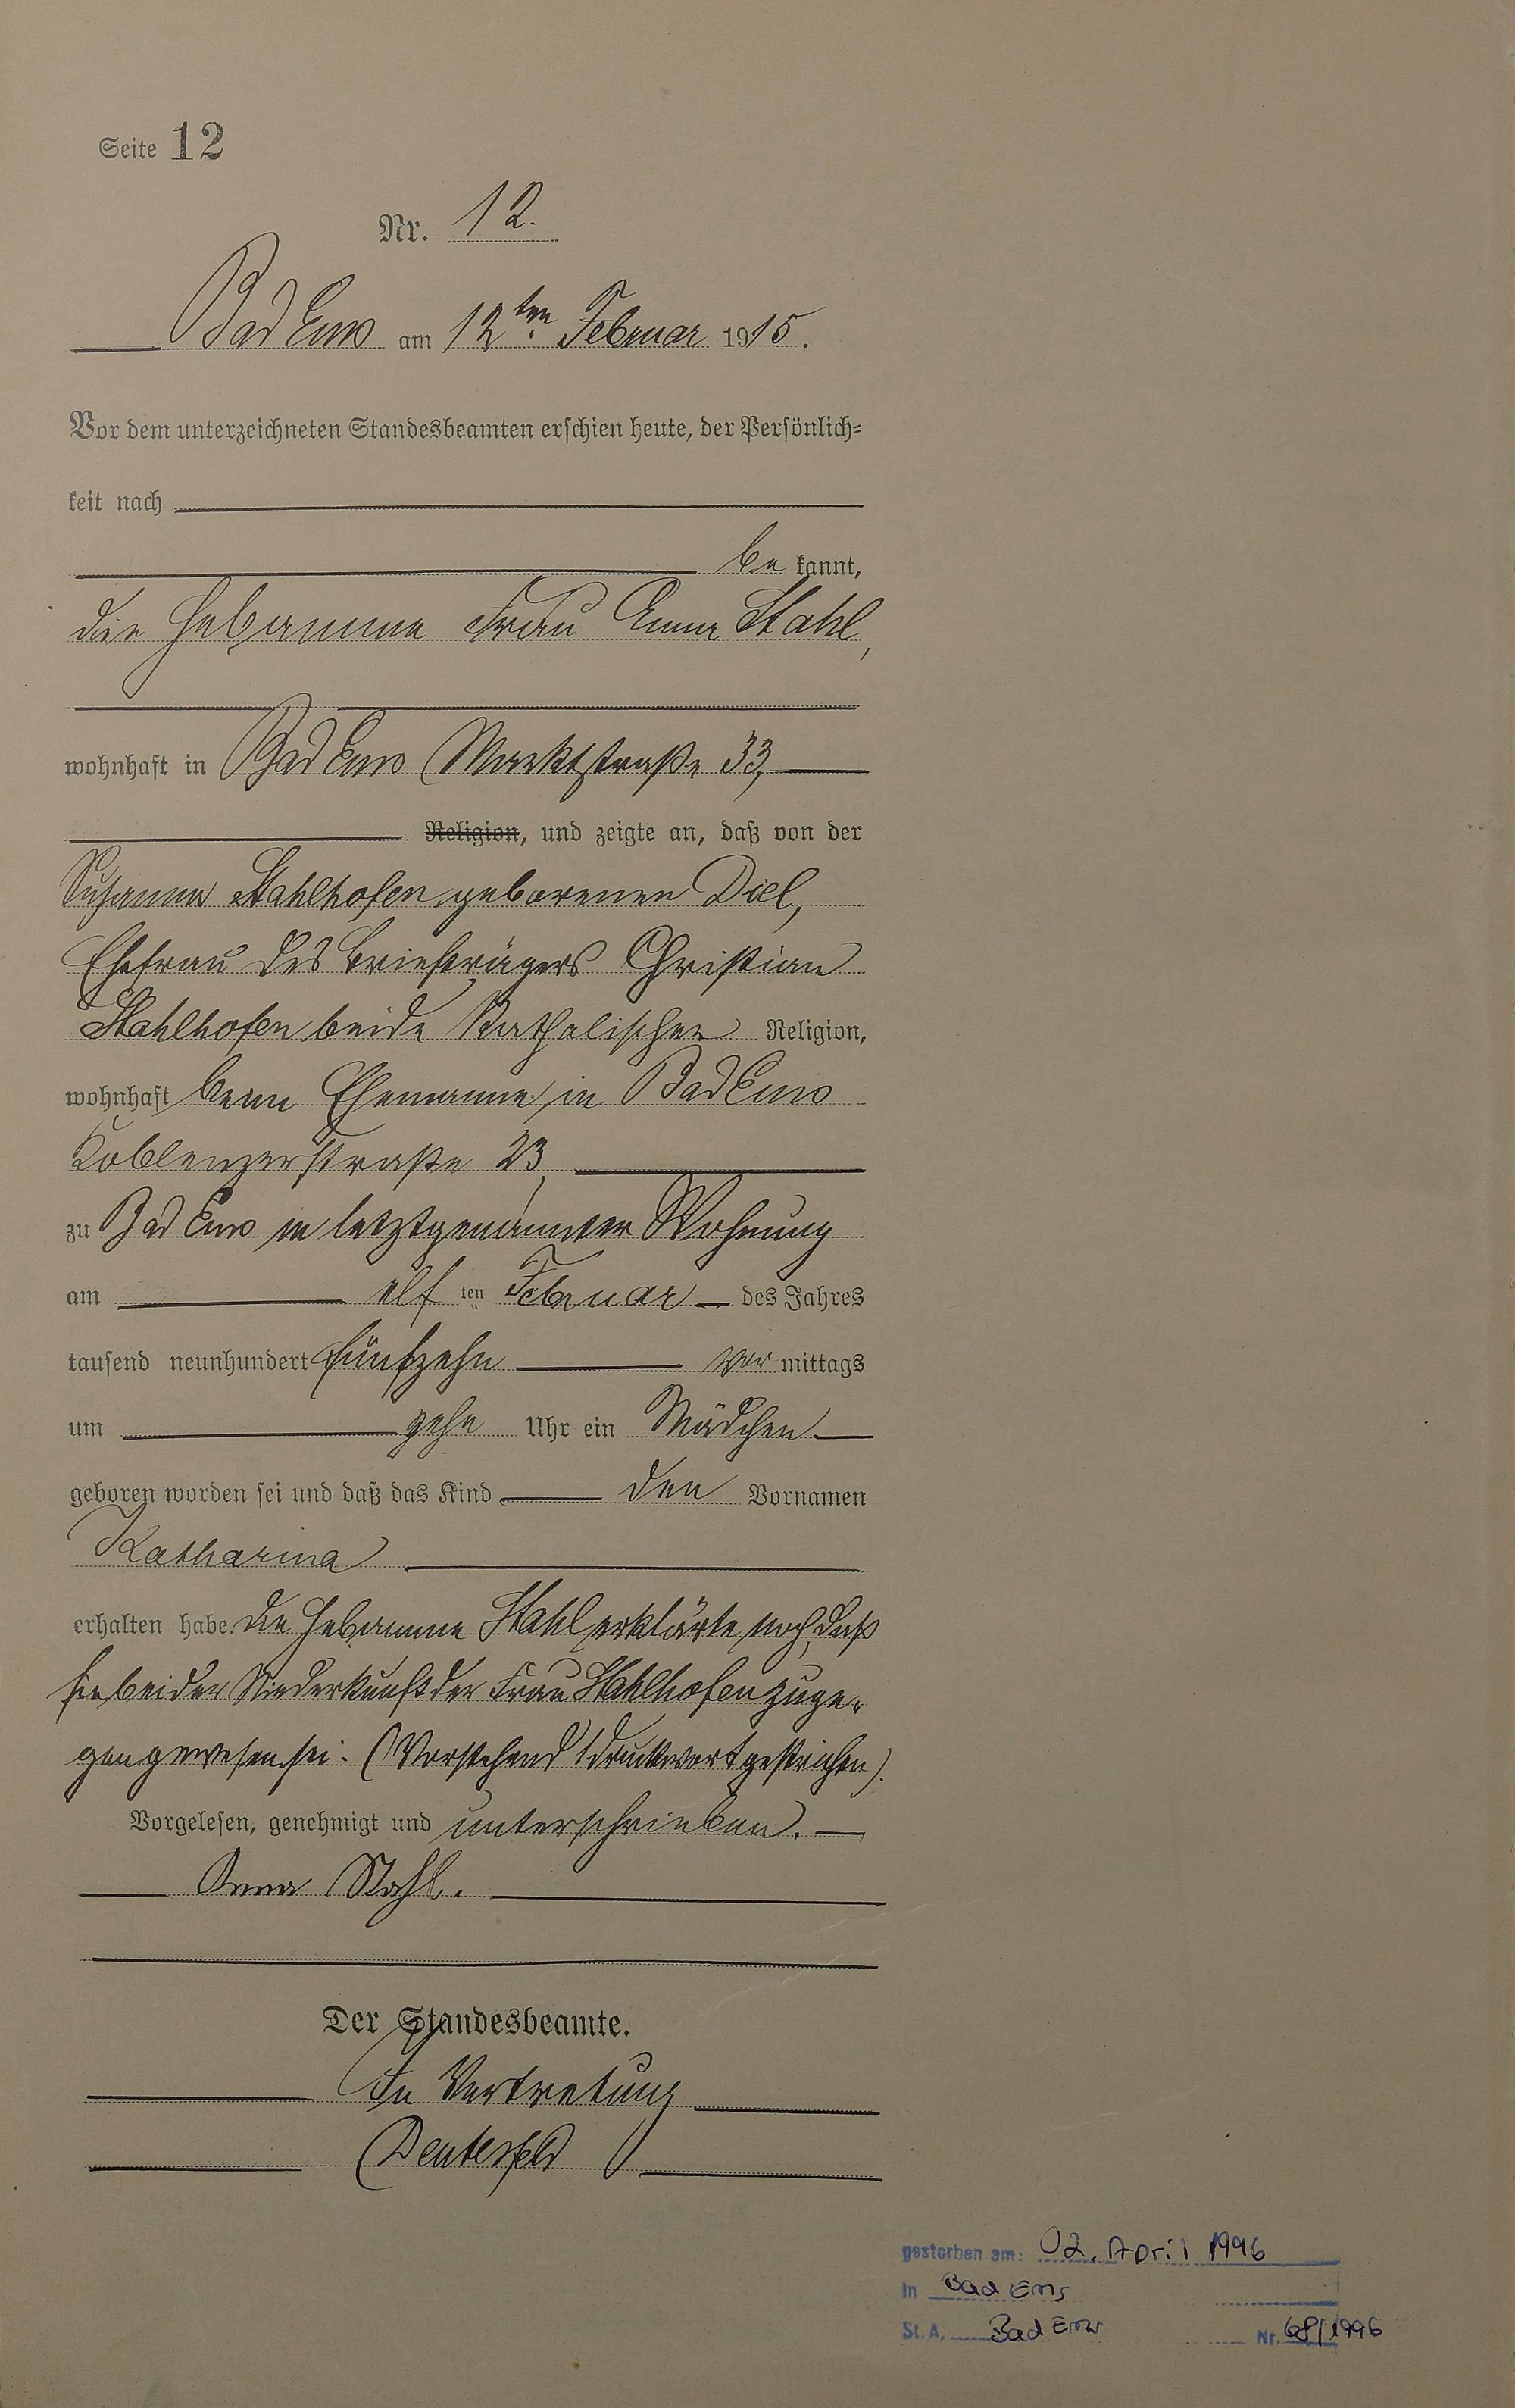 Seite 12
Nr. 12.
Bad Ems am 12ten Februar 1915.
Vor dem unterzeichneten Standesbeamten erschien heute, der Persönlich=
keit nach
be kannt,
die Hebamme Frau Anna Stahl,
wohnhaft in Bad Ems Marktstraße 33,
Religion, und zeigte an, daß von der
Susanna Stahlhofen geborenen Diel,
Ehefrau des Briefträgers Christian
Stahlhofen beide Katholischer Religion,
wohnhaft beim Ehemanne in Bad Ems
Koblenzerstraße 23,
zu Bad Ems in letztgenannter Wohnung
am elf ten Februar des Jahres
tausend neunhundert fünfzehn Vor mittags
um zehn Uhr ein Mädchen
geboren worden sei und daß das Kind den Vornamen
Katharina
erhalten habe. Die Hebamme Stahl erklärte noch, daß
sie bei der Niederkunft der Frau Stahlhofen zuge-
gen gewesen sei. (Vorstehend 1 Druckwort gestrichen).
Vorgelesen, genehmigt und unterschrieben.
Anna Stahl.
Der Standesbeamte.
In Vertretung
gestorben am: 02. April 1996
in Bad Ems
St. A. Bad Ems Nr. 68/1996